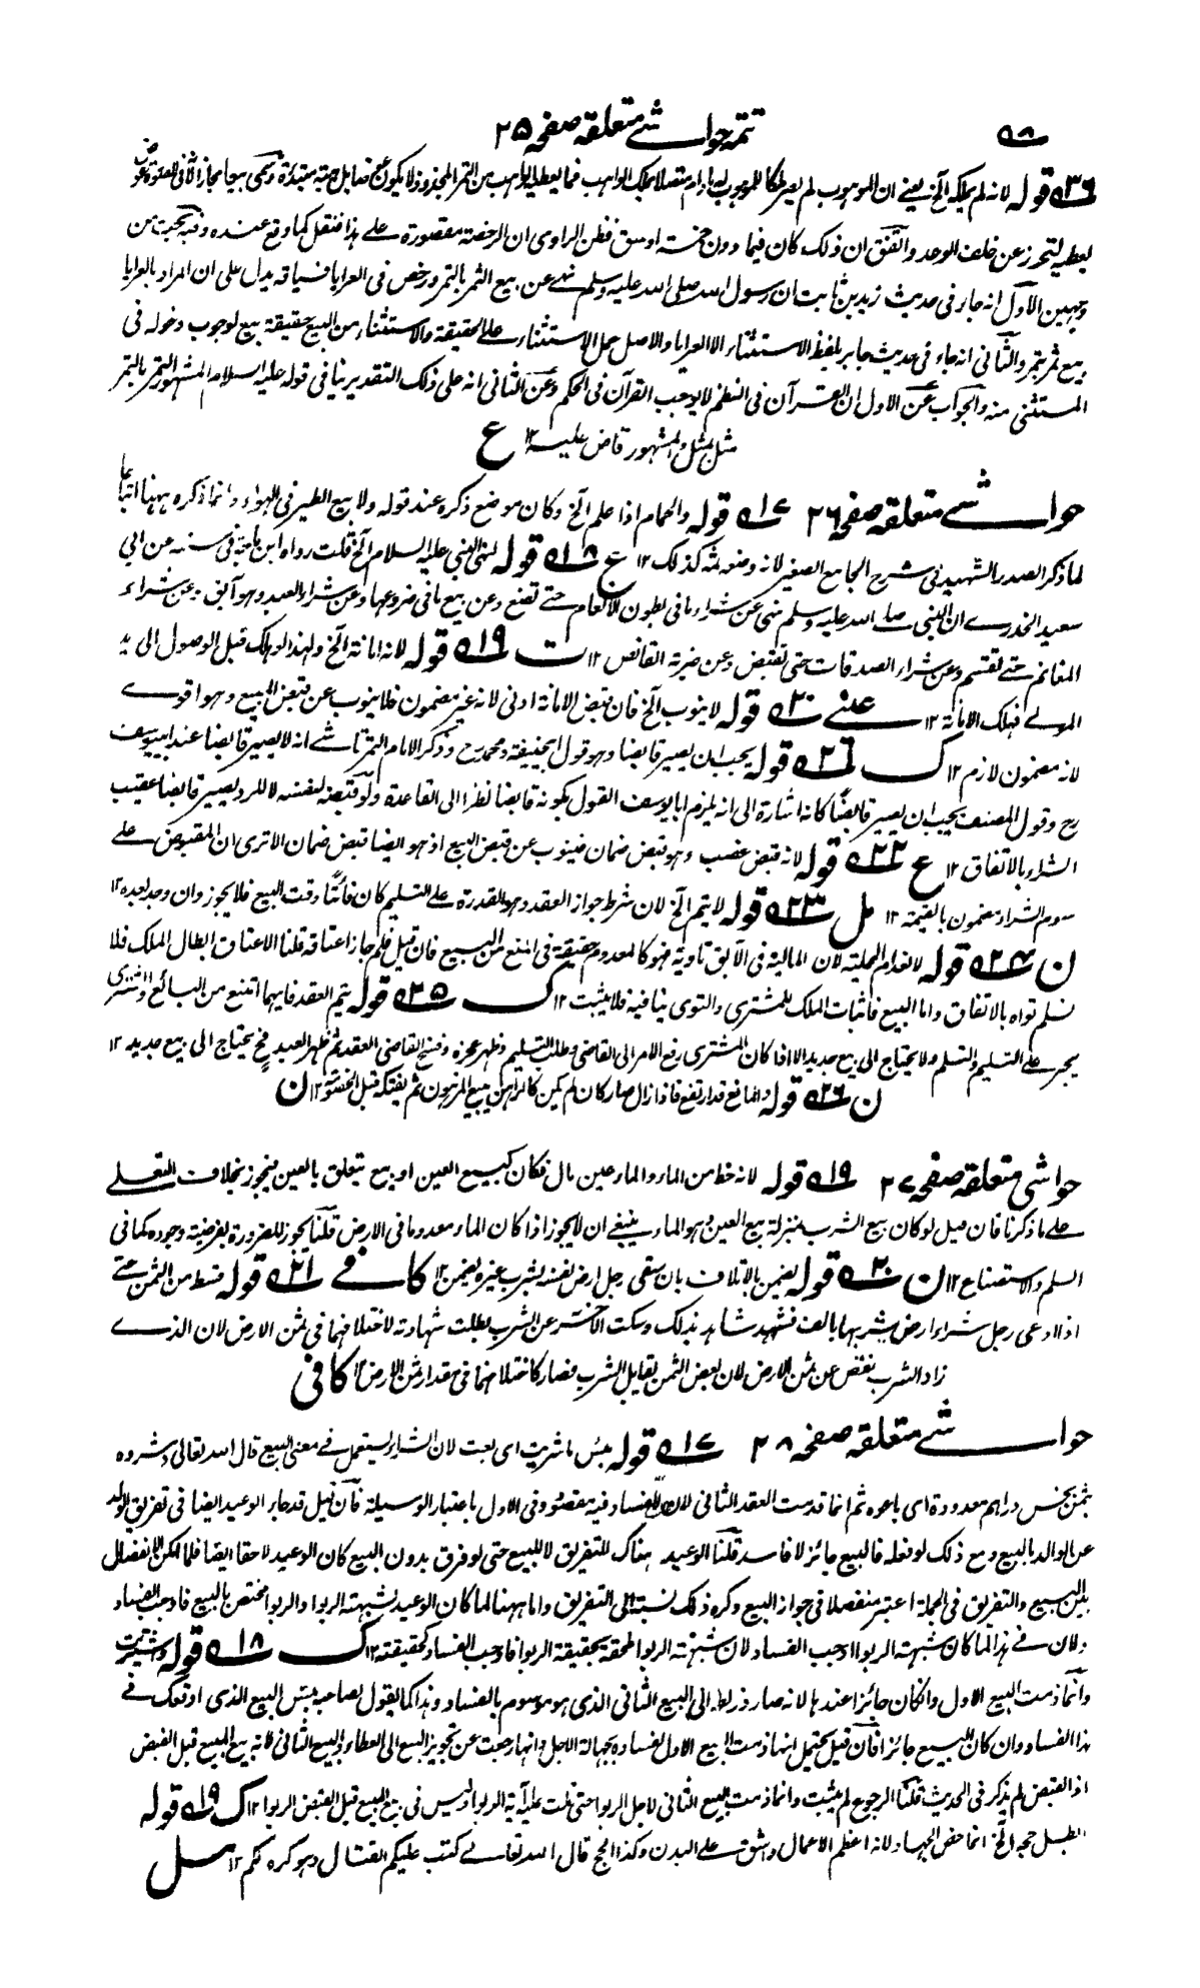 ۵۸ تتمہ حواشی متعلقہ صفحہ ۲۵
۳۶ قولہ لانہ لم یملکہ آلخ یعنے ان الموہوب لم یصر ملکا للموہوب لہ مادام متصلا بملک الواہب فما یعطیہ الواہب من التمر المجذوذ لا یکون عوضا بل ہبۃ مبتدأۃ وسمی بیعا مجازا لانہ فی الصورۃ عوض
یعطیہ للتحرز عن خلف الوعد واتفق ان ذلک کان فیما دون خمسۃ اوسق فظن الراوی ان الرخصۃ مقصورۃ علے ہذا فنقل کما وقع عندہ وفیہ بحث من
وجہین الاول انہ جاء فی حدیث زید بن ثابت ان رسول اللہ صلی اللہ علیہ وسلم نہے عن بیع الثمر بالتمر ورخص فی العرایا فسیاقہ یدل علی ان المراد بالعرایا
بیع ثمر بتمر والثانی انہ جاء فی حدیث جابر بلفظ الاستثناء الا العرایا والاصل حمل الاستثناء علے الحقیقۃ والاستثناء من البیع حقیقۃ بیع لوجوب دخولہ فی
المستثنی منہ والجواب عن الاول ان القرآن فی النظم لا یوجب القرآن فی الحکم وعن الثانی انہ علی ذلک التقدیر ینافی قولہ علیہ السلام المشہور التمر بالتمر
مثل بمثل والمشہور قاض علیہ ۱۲ ع
حواشی متعلقہ صفحہ ۲۶ ۱۷ قولہ والحمام اذا علم آلخ وکان موضع ذکرہ عند قولہ ولا بیع الطیر فی الہواء وانما ذکرہ ہہنا اتباعا
لما ذکر الصدر الشہید فی شرح الجامع الصغیر لانہ وضعہ ثمہ کذلک ۱۲ ع ۱۸ قولہ لنہی النبی علیہ السلام آلخ قلت رواہ ابن ماجۃ فی سننہ عن ابی
سعید الخدرے ان النبی صلے اللہ علیہ وسلم نہی عن شراء ما فی بطون الانعام حتے تضع وعن بیع ما فی ضروعہا وعن شراء العبد وہو آبق وعن شراء
المغانم حتے تقسم وعن شراء الصدقات حتی تقبض وعن ضربۃ القانص ۱۲ ت ۱۹ قولہ لانہ امانۃ آلخ ولہذا لو ہلک قبل الوصول الی ید
المولے فہلک الامانۃ ۱۲ عینے ۲۰ قولہ لا ینوب آلخ فان قبض الامانۃ ادنی لانہ غیر مضمون فلا ینوب عن قبض المبیع وہو اقوے
لانہ مضمون لازم ۱۲ ک ۲۱ قولہ یجب ان یصیر قابضا وہو قول ابیحنیفۃ ومحمد رح وذکر الامام التمرتاشے انہ لا یصیر قابضا عند ابییوسف
رح وقول المصنف یجب ان یصیر قابضا کانہ اشارۃ الی انہ یلزم ابا یوسف القول بکونہ قابضا نظرا الی القاعدۃ ولو قبضہ لنفسہ لا للرد یصیر قابضا عقیب
الشراء بالاتفاق ۱۲ ع ۲۲ قولہ لانہ قبض غصب وہو قبض ضمان فینوب عن قبض البیع اذ ہو ایضا قبض ضمان الا تری ان المقبوض علے
سوم الشراء مضمون بالقیمۃ ۱۲ مل ۲۳ قولہ لا یتم آلخ لان شرط جواز العقد وہو القدرۃ علے التسلیم کان فائتا وقت البیع فلا یجوز وان وجد بعدہ ۱۲
ن ۲۴ قولہ لانعدام المحلیۃ لان المالیۃ فی الآبق تاویۃ فہو کالمعدوم حقیقۃ فی المنع من البیع فان قیل فلم جاز اعتاقہ قلنا الاعتاق ابطال الملک فلا
نسلم تواہ بالاتفاق واما البیع فاثبات الملک للمشتری والتوی ینافیہ فلا یثبت ۱۲ ک ۲۵ قولہ یتم العقد فایہما امتنع من البائع والمشتری
یجبر علے التسلیم والتسلم ولا یحتاج الی بیع جدید الا اذا کان المشتری رفع الامر الی القاضی وطلب التسلیم وظہر عجزہ وفسخ القاضی العقد ثم ظہر العبد فح یحتاج الی بیع جدید ۱۲
ن ۲۶ قولہ والمانع قد ارتفع فاذا زال صار کان لم یکن کالراہن یبیع المرہون ثم یفتکہ قبل الخصومۃ ۱۲ ن
حواشی متعلقہ صفحہ ۲۷ ۱۹ قولہ لانہ حظ من الماء والماء عین مال فکان کبیع العین او بیع یتعلق بالعین فیجوز بخلاف التعلی
علے ما ذکرنا فان قیل لو کان بیع الشرب بمنزلۃ بیع العین وہو الماء ینبغے ان لا یجوز اذا کان الماء معدوما فی الارض قلنا یجوز للضرورۃ بفرضیۃ وجودہ کما فی
السلم والاستصناع ۱۲ ن ۲۰ قولہ یضمن بالاتلاف بان سقی رجل ارض نفسہ بشرب غیرہ یضمن ۱۲ کافے ۲۱ قولہ قسط من الثمن حتے
اذا ادعی رجل شراء ارض بشربہا بالف فشہد شاہد بذلک وسکت الآخر عن الشرب بطلت شہادتہ لاختلافہما فی ثمن الارض لان الذے
زاد الشرب نقص عن ثمن الارض لان بعض الثمن یقابل الشرب فصار کاختلافہما فی مقدار ثمن الارض ۱۲ کافی
حواشی متعلقہ صفحہ ۲۸ ۱۷ قولہ بئس ما شریت ای بعت لان الشراء یستعمل فے معنی البیع قال اللہ تعالی وشروہ
بثمن بخس دراہم معدودۃ ای باعوہ ثم انما قدمت العقد الثانی لان الفساد فیہ مقصود وفی الاول باعتبار الوسیلۃ فان قیل قد جاء الوعید ایضا فی تفریق الولد
عن الوالد بالبیع ومع ذلک لو فعلہ فالبیع جائز لا فاسد قلنا الوعید ہناک للتفریق لا للبیع حتی لو فرق بدون البیع کان الوعید لاحقا ایضا فلما امکن الانفصال
بین البیع والتفریق فی الجملۃ اعتبر منفصلا فی جواز البیع وکرہ ذلک نسبۃ الی التفریق واما ہہنا لما کان الوعید لشبہۃ الربوا والربوا مختص بالبیع فاوجب الفساد
ولان فے ہذا لما کان شبہۃ الربوا اوجب الفساد لان شبہۃ الربوا ملحقۃ بحقیقۃ الربوا فاوجب الفساد کحقیقتہ ۱۲ ک ۱۸ قولہ واشتریت
وانما ذمت البیع الاول وان کان جائزا عندہا لانہ صار ذریعۃ الی البیع الثانی الذی ہو موسوم بالفساد وہذا کما یقول لصاحبہ بئس البیع الذی اوقعک فے
ہذا الفساد وان کان البیع جائزا فان قیل یحتمل انہا ذمت البیع الاول لفسادہ بجہالۃ الاجل وانہا رجعت عن تجویز البیع الی العطاء والبیع الثانی لانہ بیع المبیع قبل القبض
اذ القبض لم یذکر فی الحدیث قلنا الرجوع لم یثبت وانما ذمت البیع الثانی لاجل الربوا حتی تلت علیہ آیۃ الربوا ولیس فی بیع المبیع قبل القبض الربوا ۱۲ ک ۱۹ قولہ
ابطل حجہ آلخ انما خص الجہاد لانہ اعظم الاعمال واشق علے البدن وکذا الحج قال اللہ تعالے کتب علیکم القتال وہو کرہ لکم ۱۲ سل